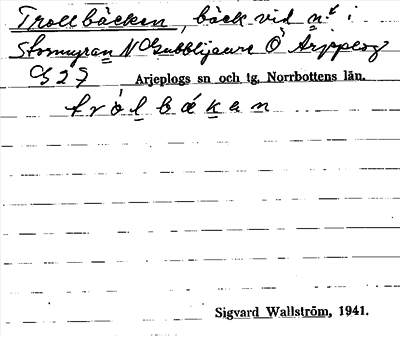 Trollbäcken, bäck vid n:r i
Stormyran NO Gubblijaure Ö Arjeplog
G27 Arjeplogs sn och tg, Norrbottens län.
trólbäkan
Sigvard Wallström, 1941.